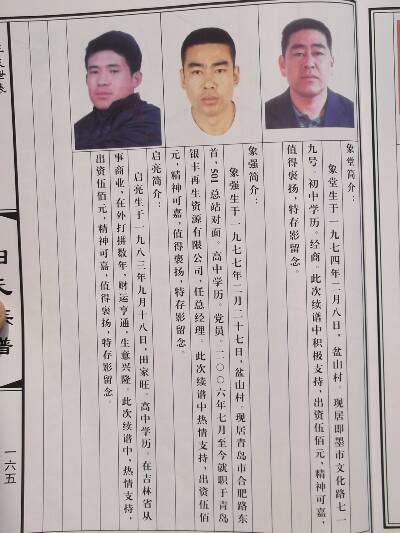 象堂简介：
象堂生于一九七四年二月八日，盆山村。现居即墨市文化路七一
九号。初中学历。经商。此次续谱中积极支持，出资伍佰元，精神可嘉，
值得褒扬，特存影留念。
象强简介：
象强生于一九七七年二月二十七日，盆山村。现居青岛市合肥路东
首，501总站对面。高中学历。党员。二〇〇六年七月至今就职于青岛
银卡再生资源有限公司，任总经理。此次续谱中热情支持，出资伍佰
元，精神可嘉，值得褒扬，特存影留念。
启亮简介：
启亮生于一九八三年九月十八日，田家旺。高中学历。在吉林省从
事商业，在外打拼数年，财运亨通，生意兴隆。此次续谱中，热情支持，
出资伍佰元，精神可嘉，值得褒扬，特存影留念。
谱
一六五